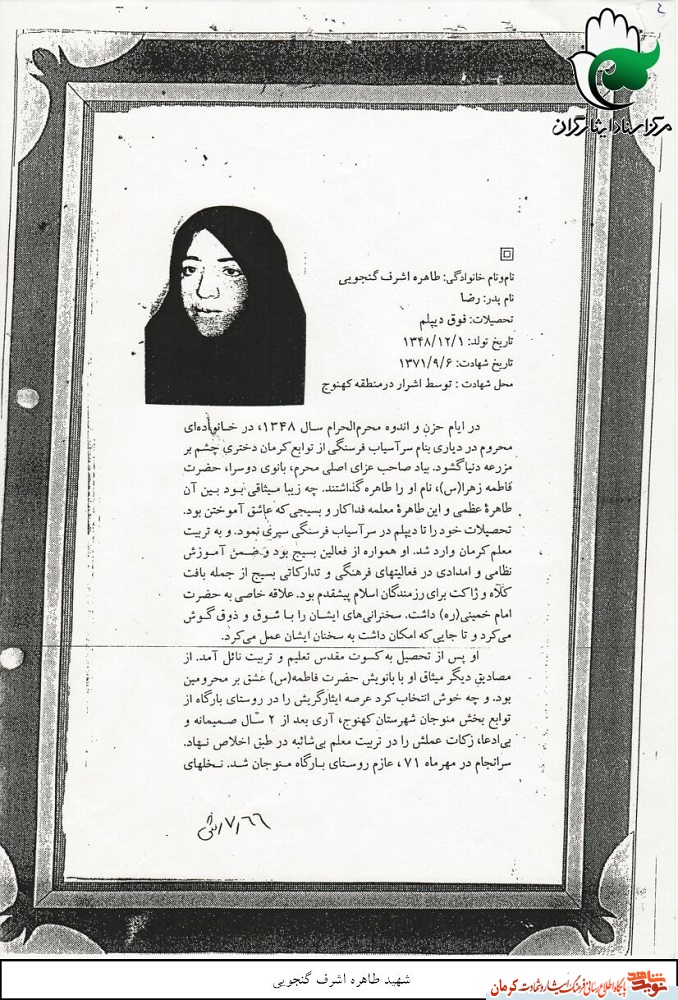 مرکز اسناد ایثارگران
نام‌ونام خانوادگی: طاهره اشرف گنجویی
نام پدر: رضا
تحصیلات: فوق دیپلم
تاریخ تولد: ۱۳۴۸/۱۲/۱
تاریخ شهادت: ۱۳۷۱/۹/۶
محل شهادت : توسط اشرار درمنطقه کهنوج
در ایام حزن و اندوه محرم‌الحرام سال ۱۳۴۸، در خانواده‌ای
محروم در دیاری بنام سرآسیاب فرسنگی از توابع کرمان دختری چشم بر
مزرعه دنیا گشود. بیاد صاحب عزای اصلی محرم، بانوی دوسرا، حضرت
فاطمه زهرا(س)، نام او را طاهره گذاشتند. چه زیبا میثاقی بود بین آن
طاهرهٔ عظمی و این طاهرهٔ معلمه فداکار و بسیجی که عاشق آموختن بود.
تحصیلات خود را تا دیپلم در سرآسیاب فرسنگی سپری نمود. و به تربیت
معلم کرمان وارد شد. او همواره از فعالین بسیج بود و ضمن آموزش
نظامی و امدادی در فعالیتهای فرهنگی و تدارکاتی بسیج از جمله بافت
کلاه و ژاکت برای رزمندگان اسلام پیشقدم بود. علاقه خاصی به حضرت
امام خمینی(ره) داشت. سخنرانی‌های ایشان را با شوق و ذوق گوش
می‌کرد و تا جایی که امکان داشت به سخنان ایشان عمل می‌کرد.
او پس از تحصیل به کسوت مقدس تعلیم و تربیت نائل آمد. از
مصادیق دیگر میثاق او با بانویش حضرت فاطمه(س) عشق بر محرومین
بود. و چه خوش انتخاب کرد عرصه ایثارگریش را در روستای بارگاه از
توابع بخش منوجان شهرستان کهنوج، آری بعد از ۲ سال صمیمانه و
بی‌ادعا، زکات عملش را در تربیت معلم بی‌شائبه در طبق اخلاص نهاد.
سرانجام در مهرماه ۷۱، عازم روستای بارگاه منوجان شد. نخلهای
شهید طاهره اشرف گنجویی
نوید شاهد
پایگاه اطلاع رسانی فرهنگ ایثار و شهادت کرمان